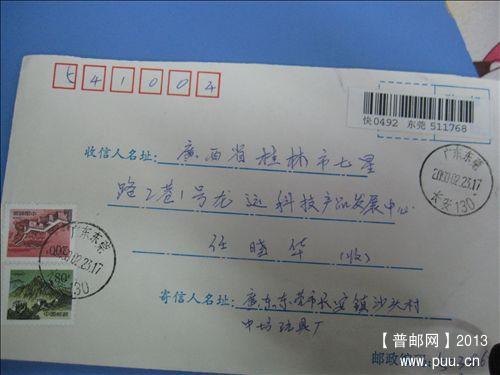 541004
快0492 东莞 511768
收信人名址：广西省桂林市七星
路2巷1号龙远科技产品发展中心
任晓华（收）
广东东莞
2000.02.23.17
长安130
200
80
中国邮政
广东东莞
2000.02.23.17
寄信人名址：广东东莞市长安镇沙头村
中坊玩具厂
邮政编码：
【普邮网】2013
www.puu.cn